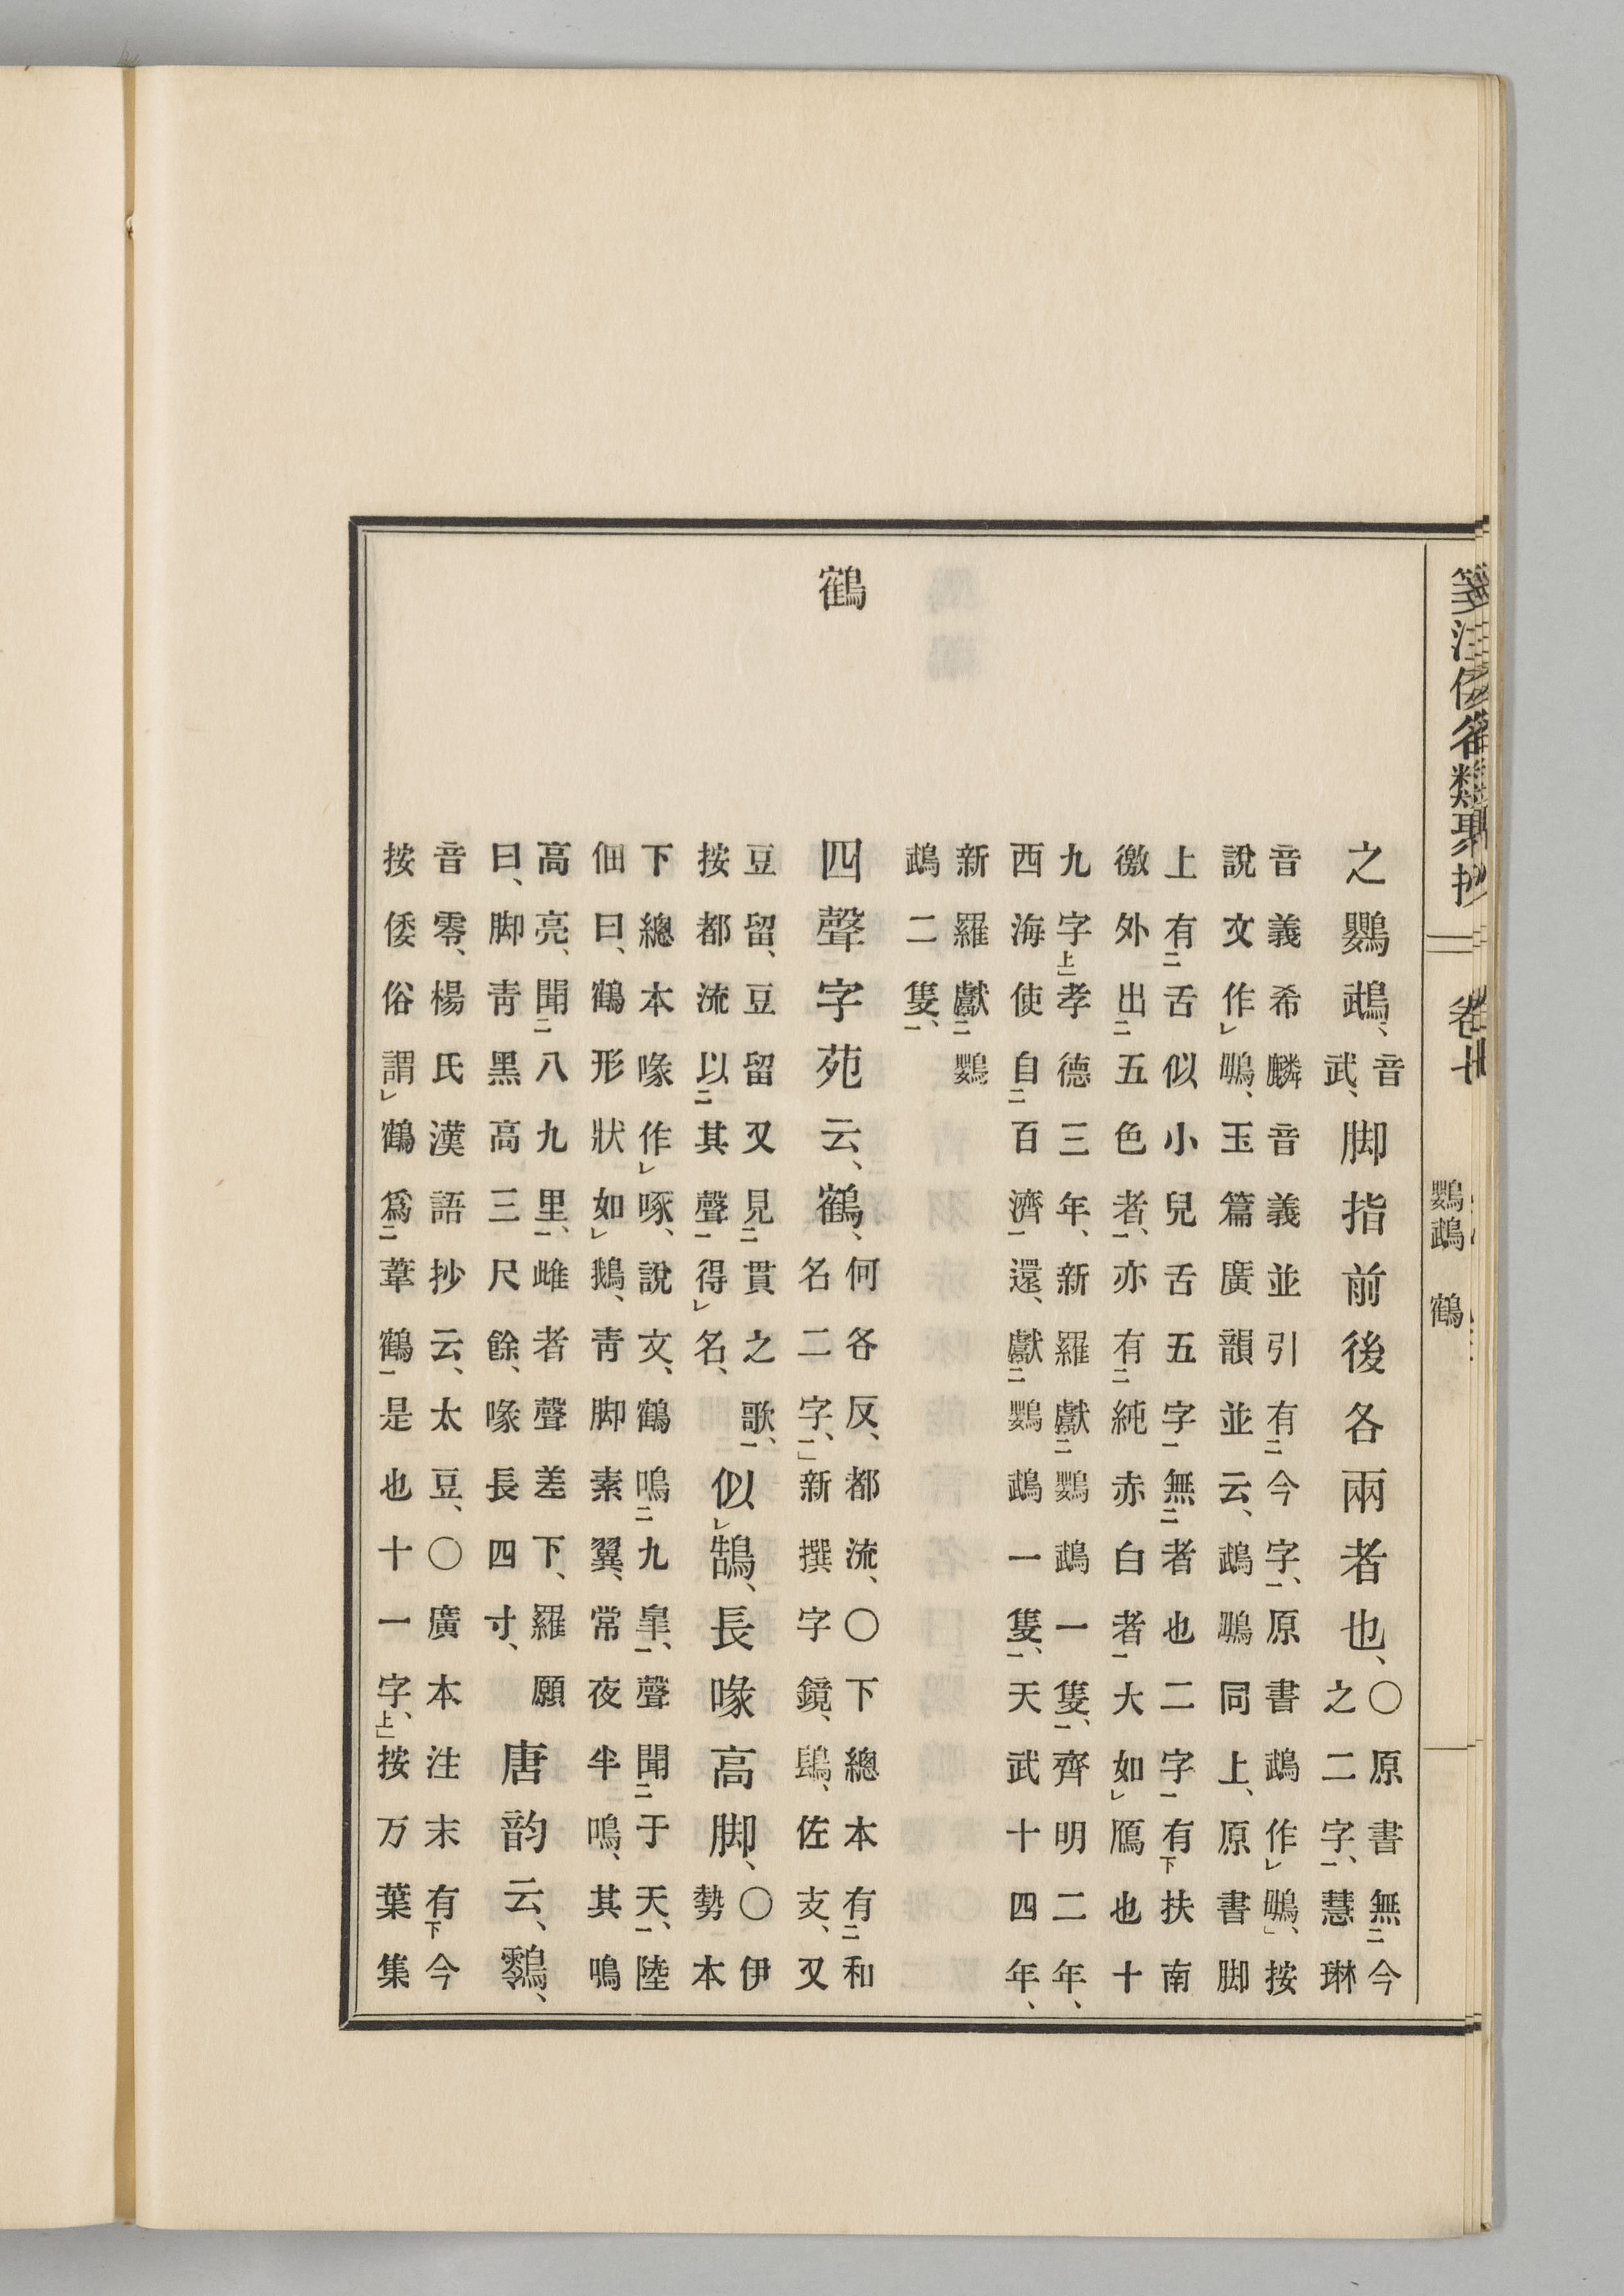 箋注倭名類聚抄 卷 鸚鵡 鶴
之鸚鵡、音武、脚指前後各兩者也、〇原書無二今
之二字、一慧琳
音義希麟音義並引有二今字、一原書鵡作レ䳇、按
說文作レ䳇、玉篇廣韻並云、鵡䳇同上、原書脚
上有二舌似小兒舌五字一無二者也二字一有下扶南
徼外出二五色者、一亦有二純赤白者一大如レ鴈也十
九字上孝德三年、新羅獻二鸚鵡一隻、一齊明二年、
西海使自二百濟一還、獻二鸚鵡一隻、一天武十四年、
新羅獻二鸚
鵡二隻、一
鶴
四聲字苑云、鶴、何各反、都流、〇下總本有二和
名二字、一新撰字鏡、佐支、又
豆留、豆留又見二貫之歌、一
按都流以二其聲一得レ名、似レ鵠、長喙高脚、〇伊
勢本
下總本喙作レ啄、說文、鶴鳴二九皐、一聲聞二于天、一陸
佃曰、鶴形狀如レ鵝、青脚素翼、常夜半鳴、其鳴
高亮、聞二八九里、一雌者聲差下、羅願
曰、脚青黑高三尺餘、喙長四寸、唐韵云、䴇、
音零、楊氏漢語抄云、太豆、〇廣本注末有下今
按倭俗謂レ鶴爲二葦鶴一是也十一字、上按万葉集